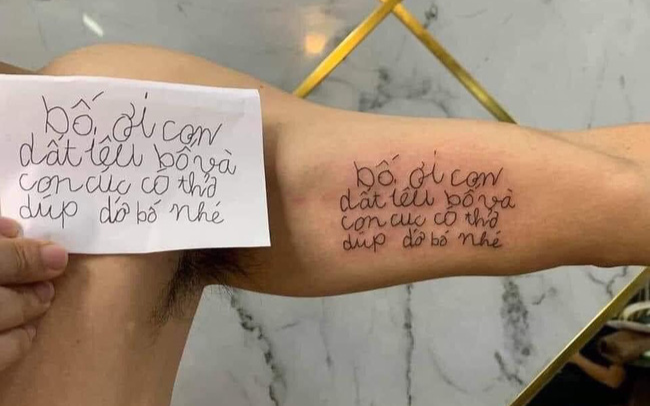 bố ơi con
dất lêu bố và
con cúc có thở
dúp dớ bố nhé
bố ơi con
dất lêu bố và
con cúc có thở
dúp dớ bố nhé